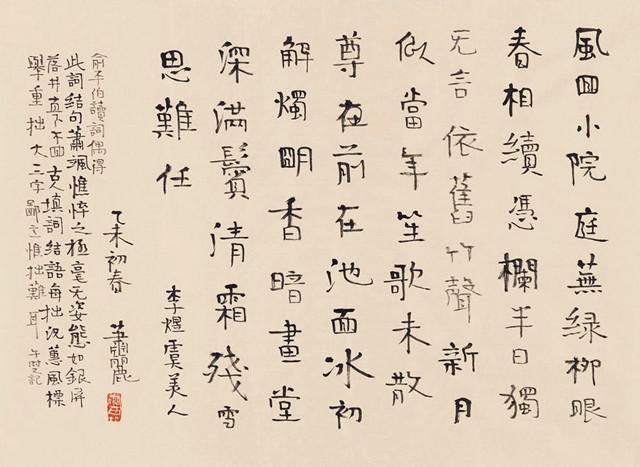 風回小院庭蕪緑柳眼
春相續憑欄半日獨
无言依舊竹聲新月
似當年笙歌未散
尊在前在池面冰初
解燭明香暗畫堂
深滿鬢清霜殘雪
思難任
李煜虞美人
乙未初春
俞平伯讀詞偶得
此詞結句蕭颯憔悴之極毫无姿態如銀屏
落井直下不回古填詞結語每拙況蕙風標
舉重拙大三字鄙意惟拙難耳